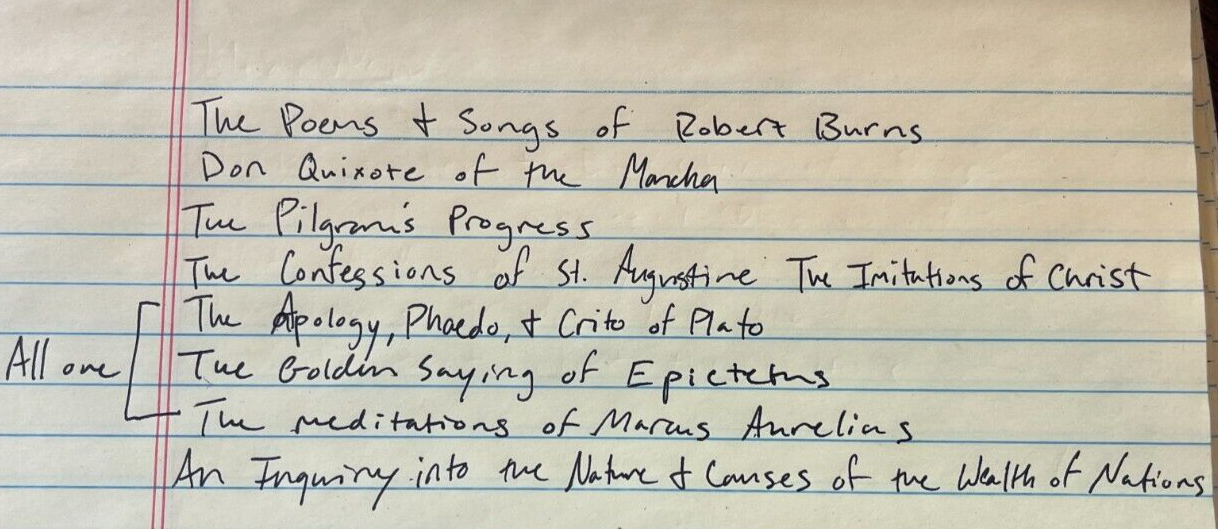 The Poems + Songs of Robert Burns
Don Quixote of the Mancha
The Pilgram's Progress
The Confessions of St. Augustine The Imitations of Christ
The Apology, Phaedo, + Crito of Plato
All one
The Golden Saying of Epictetus
The meditations of Marcus Aurelias
An Inquiry into the Nature + Causes of the Wealth of Nations